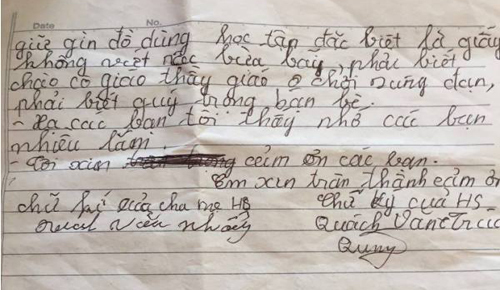 Date No.
giữ gìn đồ dùng học tập đặc biệt là giấy
không viết bừa bãy, phải biết
chào cô giáo thầy giáo chơi dung
phải biết quý trọng bạn bè.
- Xa các bạn tôi thấy nhớ các bạn
nhiều lắm.
- Tôi xin cảm ơn các bạn.
Em xin trân thành cảm ơn
chữ kí của cha mẹ HS Chữ ký của HS
văn Quách Văn
Quny